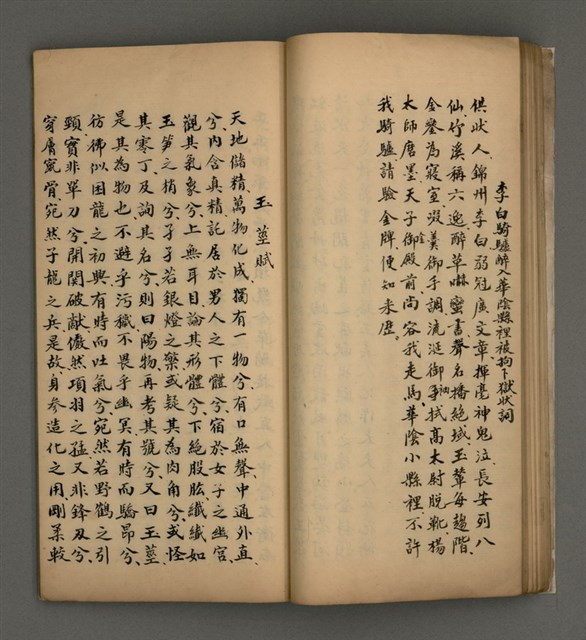 李白騎驢醉入華陰縣裡被拘下獄狀詞
供狀人錦州李白弱冠廣文章揮毫神鬼泣長安列八
仙竹溪稱六逸醉草嚇蠻書聲名播絶域玉輦每趨階
金鑾為寢室啜羹御手調流涎御袖拭高太尉脫靴楊
太師磨墨天子御殿前尚容我走馬華陰小縣裡不許
我騎驢請驗金牌便知来歷
玉莖賦
天地儲精萬物化成獨有一物兮有口無聲中通外直
兮內含真精託居於男人之下體兮宿於女子之幽宮
觀其氣象兮上無耳目論其形體兮下絶股肱纖纖如
玉笋之梢兮孑孑若銀燈之檠或疑其為肉角兮或怪
其寒丁及詢其名兮則曰陽物再考其號兮又曰玉莖
是其為物也不避乎污穢不畏乎幽冥有時而驕昂兮
彷彿似困龍之初興有時而吐氣兮宛然若野鶴之引
頸實非單刀兮開関破敵儼然項羽之猛又非鋒刃兮
穿膚竄骨宛然子龍之兵是故身參造化之用剛柔較